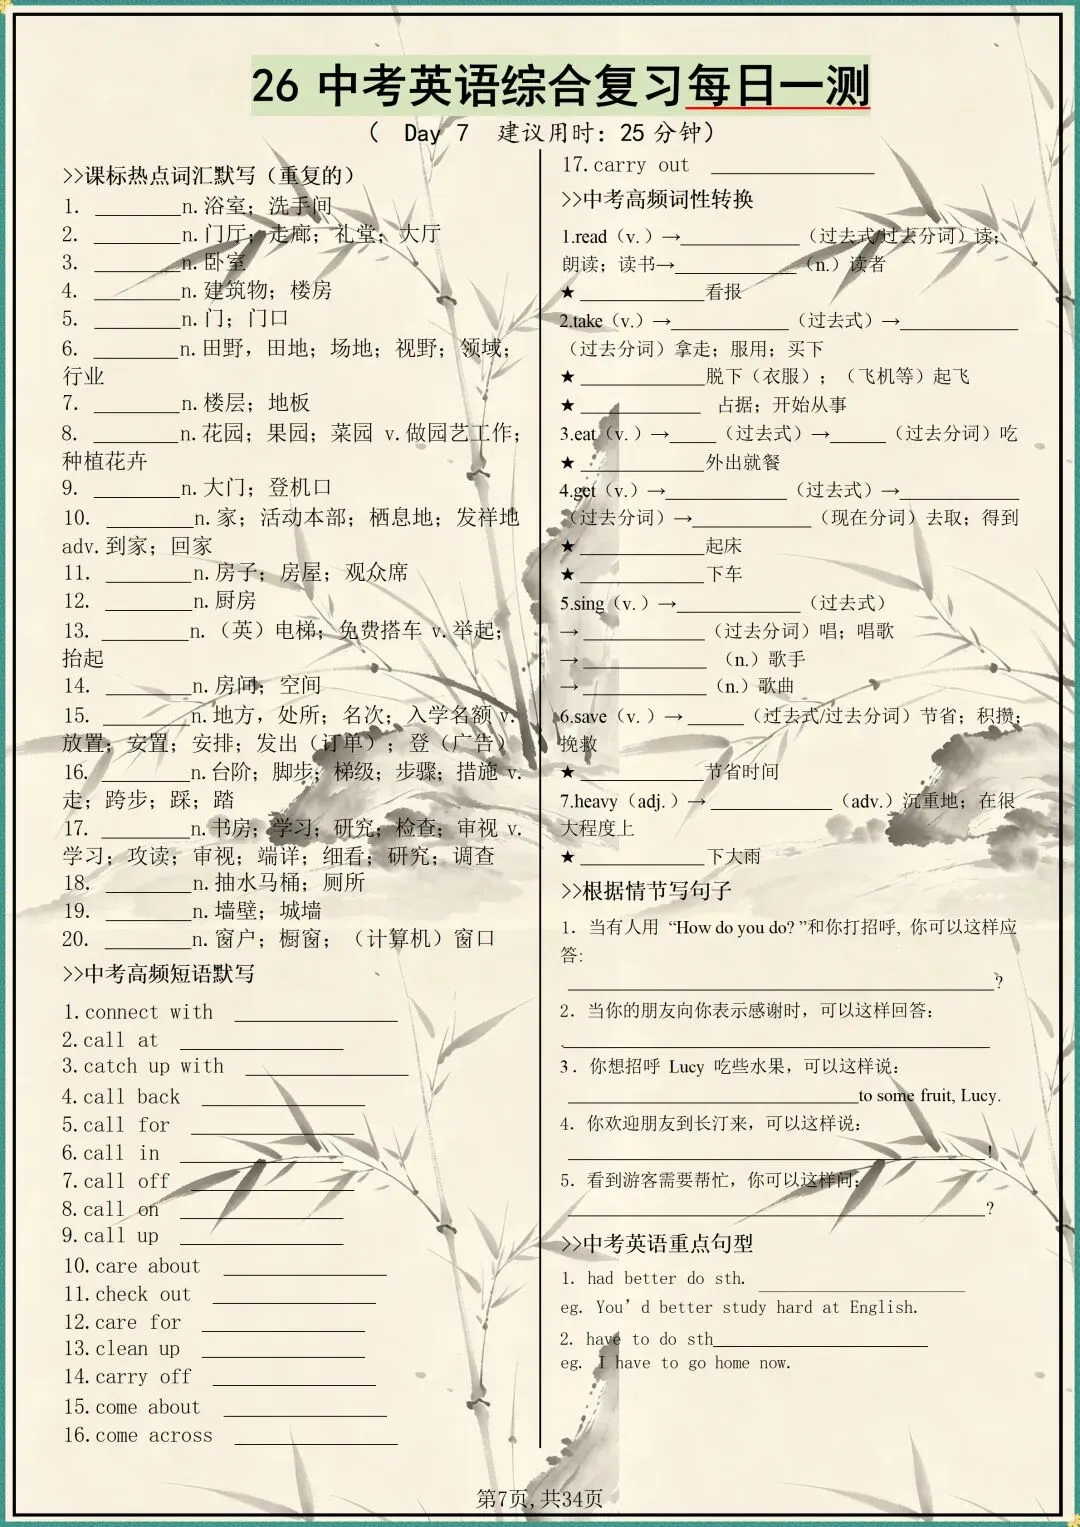 26 中考英语综合复习每日一测
（ Day 7 建议用时：25 分钟）
>>课标热点词汇默写（重复的）
1. ________n.浴室；洗手间
2. ________n.门厅；走廊；礼堂；大厅
3. ________n.卧室
4. ________n.建筑物；楼房
5. ________n.门；门口
6. ________n.田野，田地；场地；视野；领域；
行业
7. ________n.楼层；地板
8. ________n.花园；果园；菜园 v.做园艺工作；
种植花卉
9. ________n.大门；登机口
10. ________n.家；活动本部；栖息地；发祥地
adv.到家；回家
11. ________n.房子；房屋；观众席
12. ________n.厨房
13. ________n.（英）电梯；免费搭车 v.举起；
抬起
14. ________n.房间；空间
15. ________n.地方，处所；名次；入学名额 v.
放置；安置；安排；发出（订单）；登（广告）
16. ________n.台阶；脚步；梯级；步骤；措施 v.
走；跨步；踩；踏
17. ________n.书房；学习；研究；检查；审视 v.
学习；攻读；审视；端详；细看；研究；调查
18. ________n.抽水马桶；厕所
19. ________n.墙壁；城墙
20. ________n.窗户；橱窗；（计算机）窗口
>>中考高频短语默写
1.connect with _______________
2.call at _______________
3.catch up with _______________
4.call back _______________
5.call for _______________
6.call in _______________
7.call off _______________
8.call on _______________
9.call up _______________
10.care about _______________
11.check out _______________
12.care for _______________
13.clean up _______________
14.carry off _______________
15.come about _______________
16.come across _______________
17.carry out _______________
>>中考高频词性转换
1.read（v. ）→_____________（过去式/过去分词）读；
朗读；读书→_____________（n.）读者
★ _____________看报
2.take（v.）→_____________（过去式）→_____________
（过去分词）拿走；服用；买下
★ _____________脱下（衣服）；（飞机等）起飞
★ _____________ 占据；开始从事
3.eat（v. ）→_____（过去式）→______（过去分词）吃
★ _____________外出就餐
4.get（v.）→_____________（过去式）→_____________
（过去分词）→_____________（现在分词）去取；得到
★ _____________起床
★ _____________下车
5.sing（v. ）→_____________（过去式）
→ _____________（过去分词）唱；唱歌
→ _____________ （n.）歌手
→ _____________（n.）歌曲
6.save（v. ）→ ______（过去式/过去分词）节省；积攒；
挽救
★ _____________节省时间
7.heavy（adj. ）→ _____________（adv.）沉重地；在很
大程度上
★ _____________下大雨
>>根据情节写句子
1. 当有人用 “How do you do? ”和你打招呼, 你可以这样应
答:
_____________________________________________?
2. 当你的朋友向你表示感谢时，可以这样回答：
._____________________________________________
3 . 你想招呼 Lucy 吃些水果，可以这样说：
_______________________________to some fruit, Lucy.
4. 你欢迎朋友到长汀来，可以这样说：
_____________________________________________!
5. 看到游客需要帮忙，你可以这样问：
_____________________________________________?
>>中考英语重点句型
1. had better do sth. ______________________
eg. You’d better study hard at English.
2. have to do sth_______________________
eg. I have to go home now.
第7页,共34页